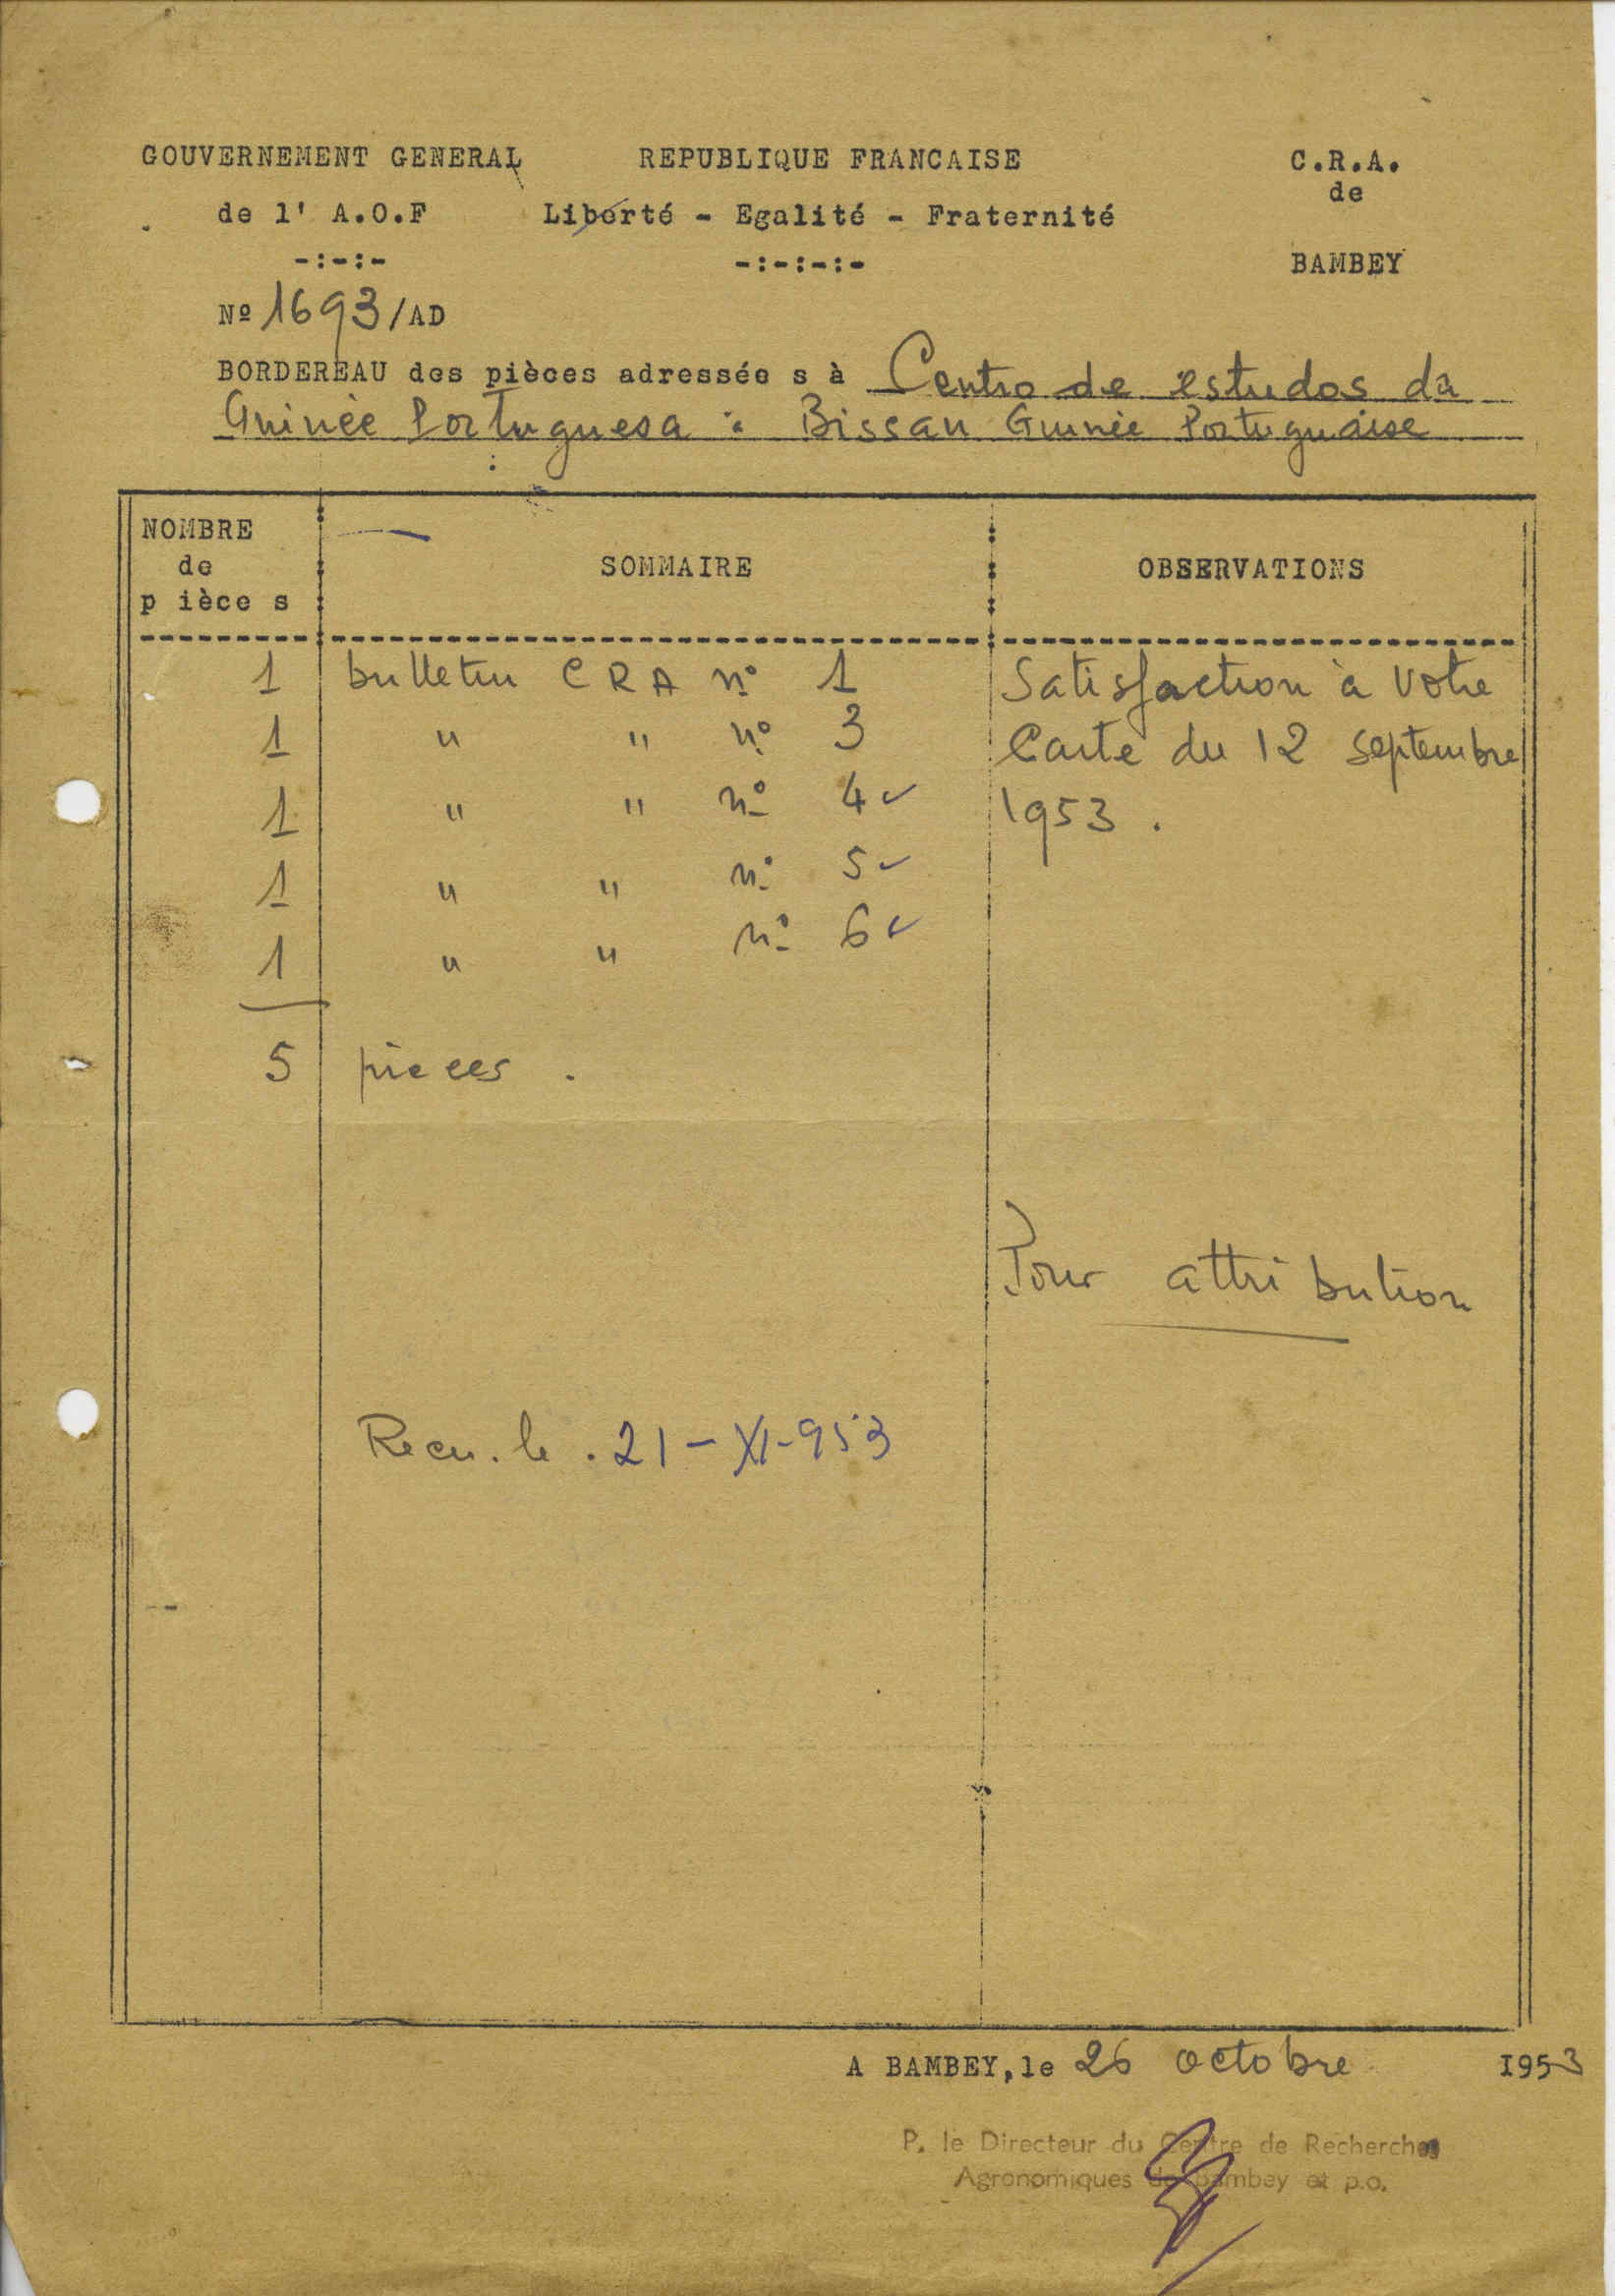 GOUVERNEMENT GENERAL REPUBLIQUE FRANCAISE C.R.A.
de l' A.O.F Liberté - Egalité - Fraternité de
-:-:- -:-:-:- BAMBEY
Nº 1693/AD
BORDEREAU des pièces adressée s à Centro de estudos da
Guinée Portuguesa : Bissau Guinée Portugaise
NOMBRE
de SOMMAIRE OBSERVATIONS
p ièce s
1 bulletin C R A nº 1 Satisfaction à votre
1 " " nº 3 Carte du 12 septembre
1 " " nº 4 ✓ 1953.
1 " " nº 5 ✓
1 " " nº 6 ✓
5 pieces .
Pour attribution
Recu. le . 21-XI-953
A BAMBEY, le 26 octobre 1953
P. le Directeur du Centre de Recherches
Agronomiques de Bambey et p.o.